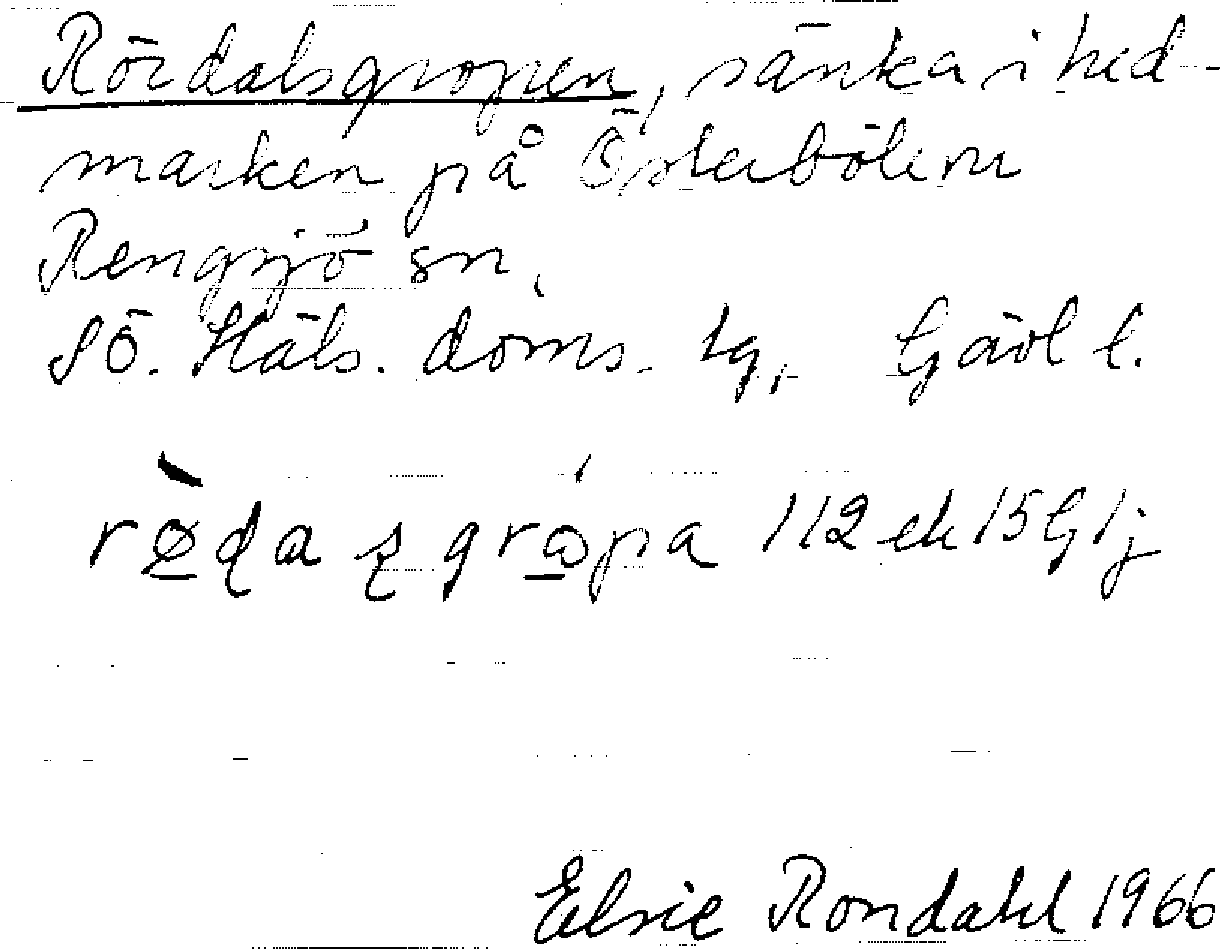 Rördalsgropen, sänka i hed-
marken på Österbölem
Rengsjö sn,
SÖ. Häls. doms. tg, Gävl l.
112 ek 15 G 1j
Elsie Rondahl 1966